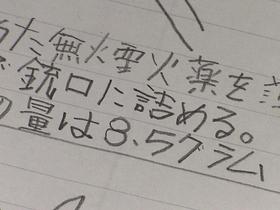 た無煙火薬を
銃口に詰める。
量は8.5グラム